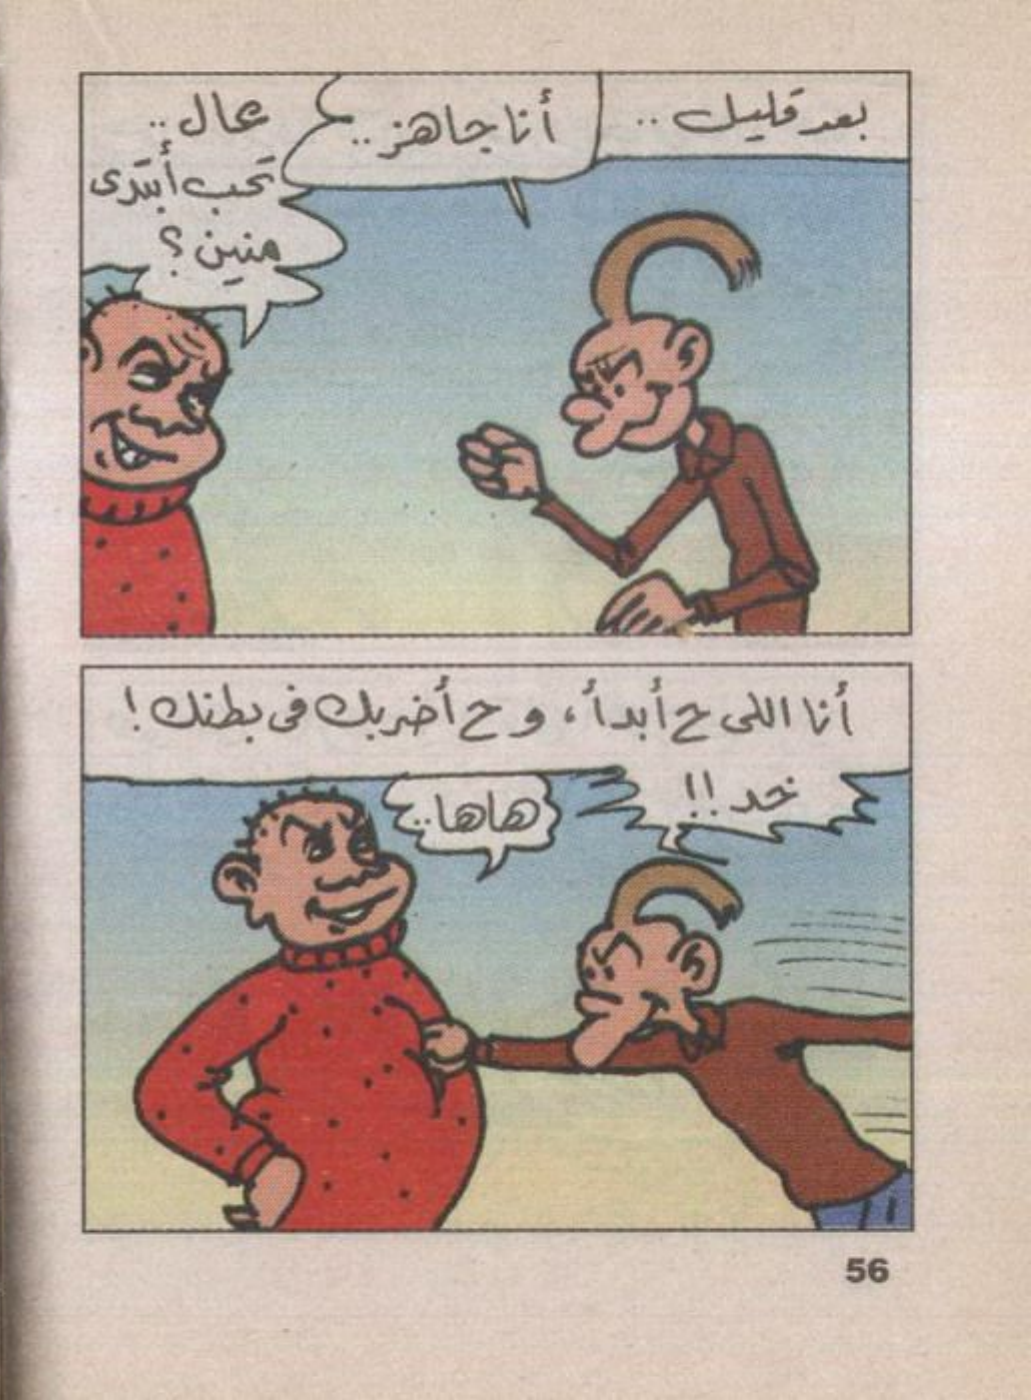 بعد قليل ..
أنا جاهز ..
عال ..
تحب أبتدى
منين ؟
أنا اللى ح أبدأ ، و ح أضربك فى بطنك !
خد !!
هاها ..
56